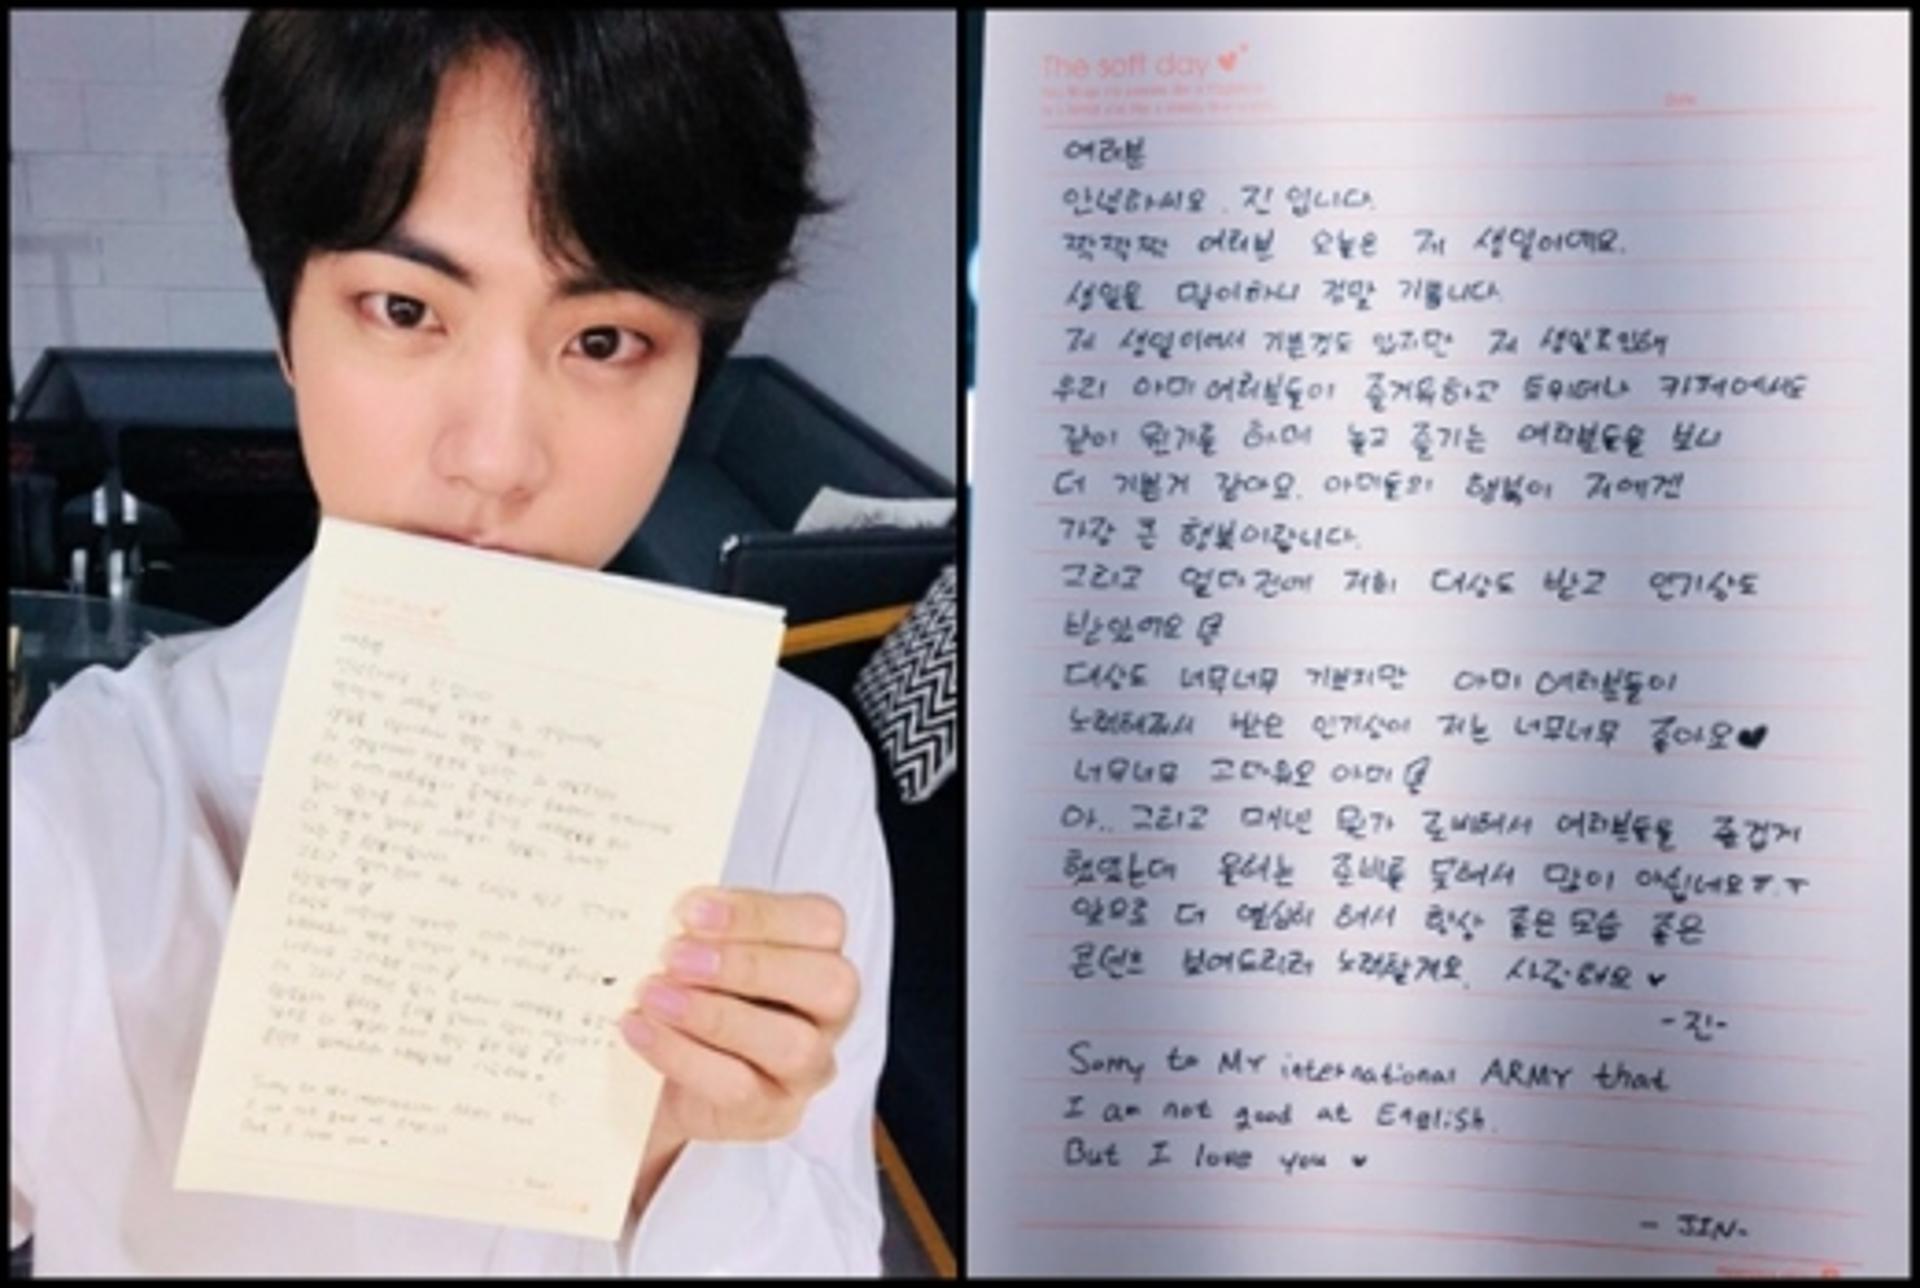 The soft day
Date
여러분
안녕하세요. 진 입니다.
짝짝짝 여러분 오늘은 저 생일이예요.
생일을 맞이하니 정말 기쁩니다.
저 생일이여서 기쁜것도 있지만 저 생일로인해
우리 아미 여러분들이 즐거워하고 트위터나 카페에서도
같이 뭔가를 하며 놀고 즐기는 여러분들을 보니
더 기쁜거 같아요. 아미들의 행복이 저에겐
가장 큰 행복이랍니다.
그리고 얼마전에 저희 대상도 받고 인기상도
받았어요
대상도 너무너무 기쁘지만 아미 여러분들이
노력해줘서 받은 인기상이 저는 너무너무 좋아요♥
너무너무 고마워요 아미
아.. 그리고 매년 뭔가 준비해서 여러분들을 즐겁게
했었는데 올해는 준비를 못해서 많이 아쉽네요ㅜ.ㅜ
앞으로 더 열심히 해서 항상 좋은 모습 좋은
콘텐츠 보여드리려 노력할게요. 사랑해요 ♥
-진-
Sorry to My international ARMY that
I am not good at English.
But I love you ♥
- JIN-